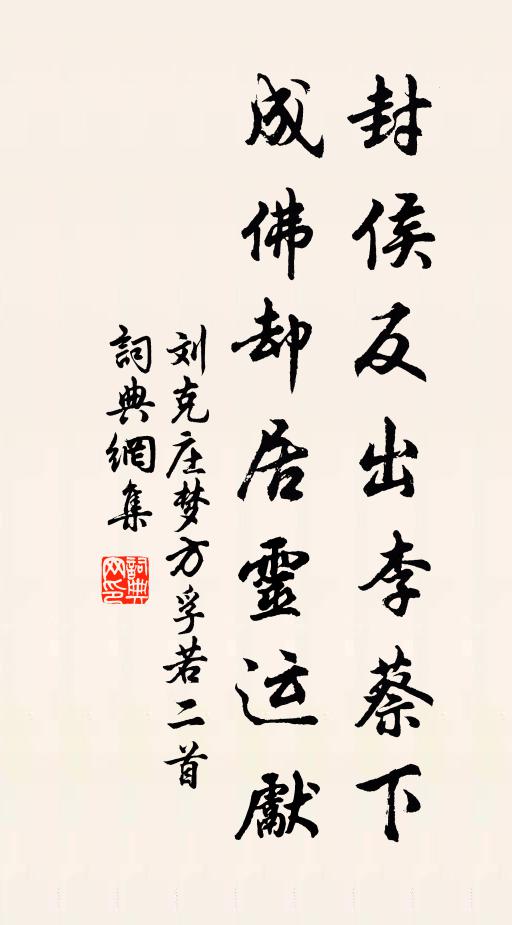 封侯反出李蔡下
成佛却居靈运獻
刘克庄梦方孚若二首
詞典網集
詞典网印